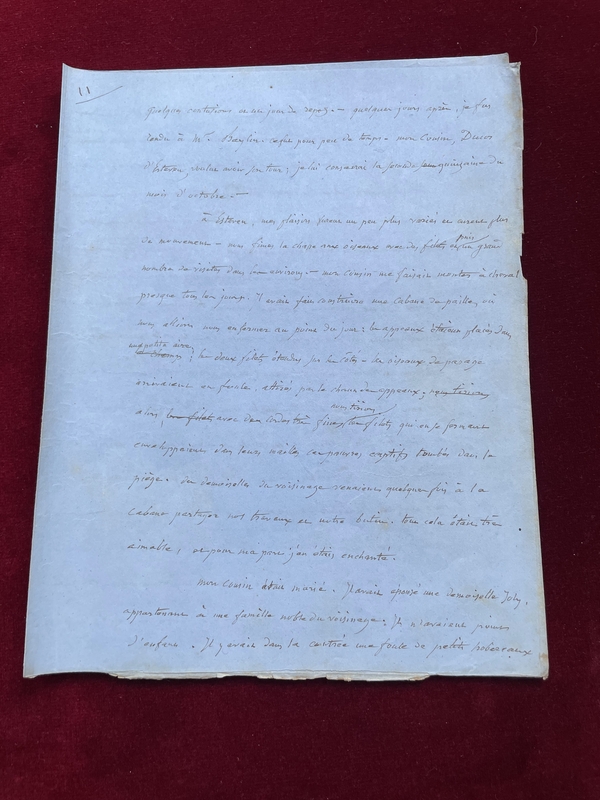 11
quelque ce jour de repos. — quelques jours après, je fus
rendu à Mr. pour peu de temps. mon Cousin, Ducos
d'Esteven voulut avoir son tour; je lui consacrai la quinzaine du
mois d'octobre. —
à Esteven, mes plaisirs furent un peu plus variés et eurent plus
de mouvement — nous fîmes la chasse aux oiseaux avec des filets puis grand
nombre de visites dans les environs — mon cousin me faisait monter à cheval
presque tous les jours. Il avait fait construire une cabane de paille, où
nous allions nous enfermer au point du jour: les appeaux étaient placés dans
une petite aire; les deux filets étendus sur les côtés — les oiseaux de passage
arrivaient en foule, attirés par le chant des appeaux; nous tirions
alors, les filets avec des cordes nous tirions filets qui en se fermant
enveloppaient dans leurs mailles ces pauvres captifs tombés dans le
piège. — des demoiselles du voisinage venaient quelquefois à la
cabane partager nos travaux et notre butin. tout cela était très
aimable, et pour ma part j'en étais enchanté.
mon cousin était marié. Il avait épousé une demoiselle Joly,
appartenant à une famille noble du voisinage. Ils n'avaient point
d'enfans. Il y avait dans la contrée une foule de petits hobereaux